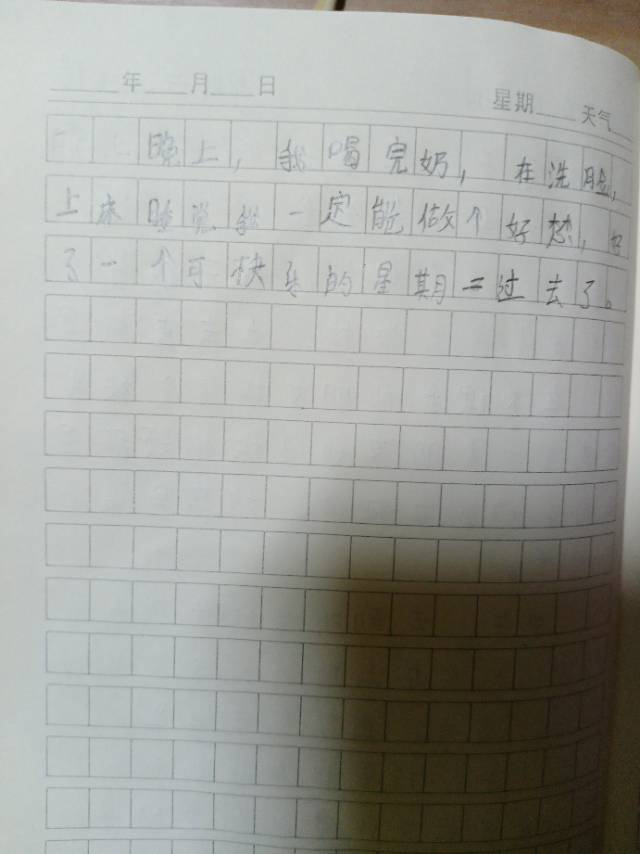 年 月 日 星期 天气
晚上，我喝完奶，在洗脸，
上床睡觉 一定能做个好梦，好
了一个可 的星期二过去了。